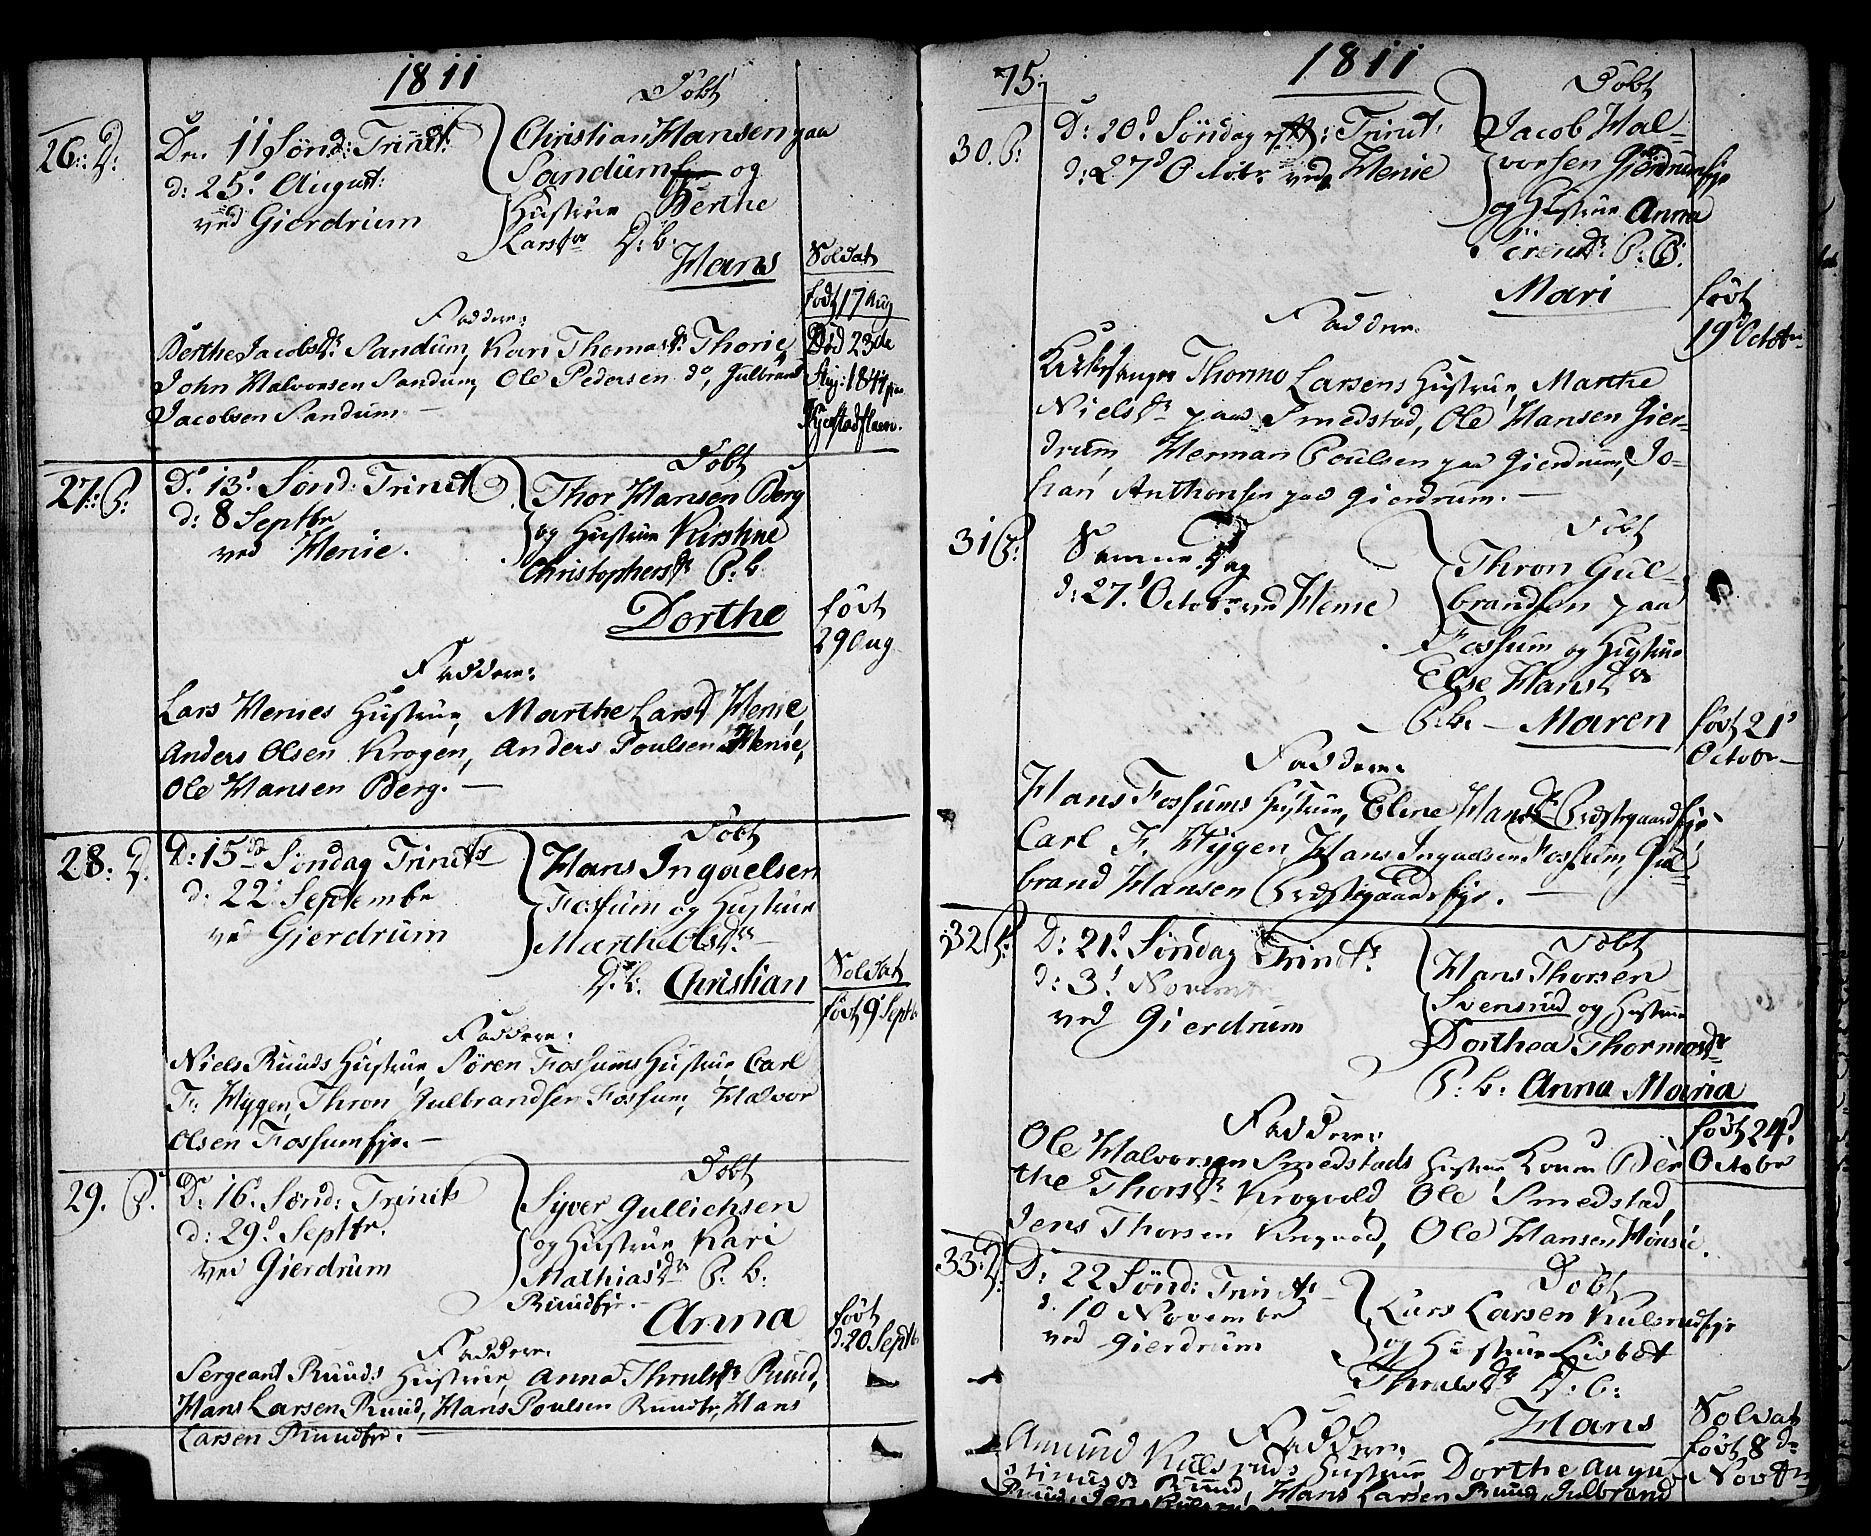 1811
Døbt
26: D:
Den 11 Sønd: Trinit:
d: 25: August:
ved Gierdrum
Christian Hansen paa
Sandum og
Hustrue Berthe
Larsdr D: b:
Hans
Soldat
født 17 Aug
Død 23de
Aug: 1841 paa
Faddere:
Berthe Jacobsdr: Sandum, Kari Thomasdr: Thorie,
John Halvorsen Sandum, Ole Pedersen do, Gulbrand
Jacobsen Sandum —
27: P:
D: 13: Sønd: Trinit
d: 8 Septbr
ved Henie.
Døbt
Thor Hansen Berg
og Hustrue Kirstine
Christophersdr P: b:
Dorthe
født
29 Aug
Faddere:
Lars Henies Hustrue, Marthe Larsd Henie,
Anders Olsen Krogen, Anders Poulsen Henie,
Ole Hansen Berg. —
28: D:
D: 15de Søndag Trinits
d: 22: Septembr
ved Gierdrum
Døbt
Hans Ingaelsen
Fossum og Hustrue
Marthe Olsdr —
D: b: Christian
Soldat
født 9 Septb
Faddere:
Niels Ruuds Hustrue, Søren Fossums Hustrue, Carl
F: Hygen, Thron Gulbrandsen Fossum, Halvor
Olsen Fossumeje. —
29. P:
D: 16: Sønd: Trinits
d: 29: Septbr.
ved Gierdrum
Døbt
Syver Gullichsen
og Hustrue Kari
Mathiasdr P: b:
Ruudeje. —
Anna
født
d: 20 Septb
Faddere
Sergeant Ruuds Hustrue, Anna Thrulsdr Ruud,
Hans Larsen Ruud, Hans Poulsen Ruudeje, Hans
Larsen Ruudeje. —
75.
1811
30. P:
D: 20: Søndag eft: Trinit:
d: 27d Octobr ved Henie
Døbt
Jacob Hal-
vorsen Gierdrumseje
og Hustrue Anna
Sørensdr: P: B:
Mari
født
19d Octobr
Faddere.
Kirkesanger Thormo Larsens Hustrue, Marthe
Nielsdr paa Smedstad, Ole Hansen Gier-
drum Herman Poulsen paa Gierdrum, Jo-
han Anthonsen paa Gierdrum. —
31 P:
Samme Dag
d: 27: Octobr ved Henie
Døbt
Thron Gul-
brandsen paa
Fossum og Hustrue
Else Hansdr
P: b: — Maren
født 21d
Octobr —
Faddere.
Hans Fossums Hustrue, Eline Hansdr Præstegaardseje
Carl F. Hygen, Hans Ingaelsen Fossum, Gul-
brand Hansen Præstegaardseje. —
32 P:
D: 21: Søndag Trinit:
d: 3: Novembr
ved Gierdrum
Døbt
Hans Thorsen
Svensrud og Hustrue
Dorthea Thormosdr
P: b: Anna Maria
født 24d
Octobr
Faddere:
Ole Halvorsen Smedstads Hustrue, Konen Ber
the Thorsdr Krogvold, Ole Smedstad,
Jens Thorsen Krogvold, Ole Hansen Hønsie.
33: D:
D: 22 Sønd: Trinit:
d. 10 Novembr
ved Gierdrum
Døbt
Lars Larsen Kulsrudseje
og Hustrue Lisbet
Thrulsdr D: b:
Hans
Soldat
født 8de
Novbr
Faddere
Amund Kulsruds Hustrue Dorthe Augu
stinusdr Ruud, Hans Larsen Ruud, Gulbrand